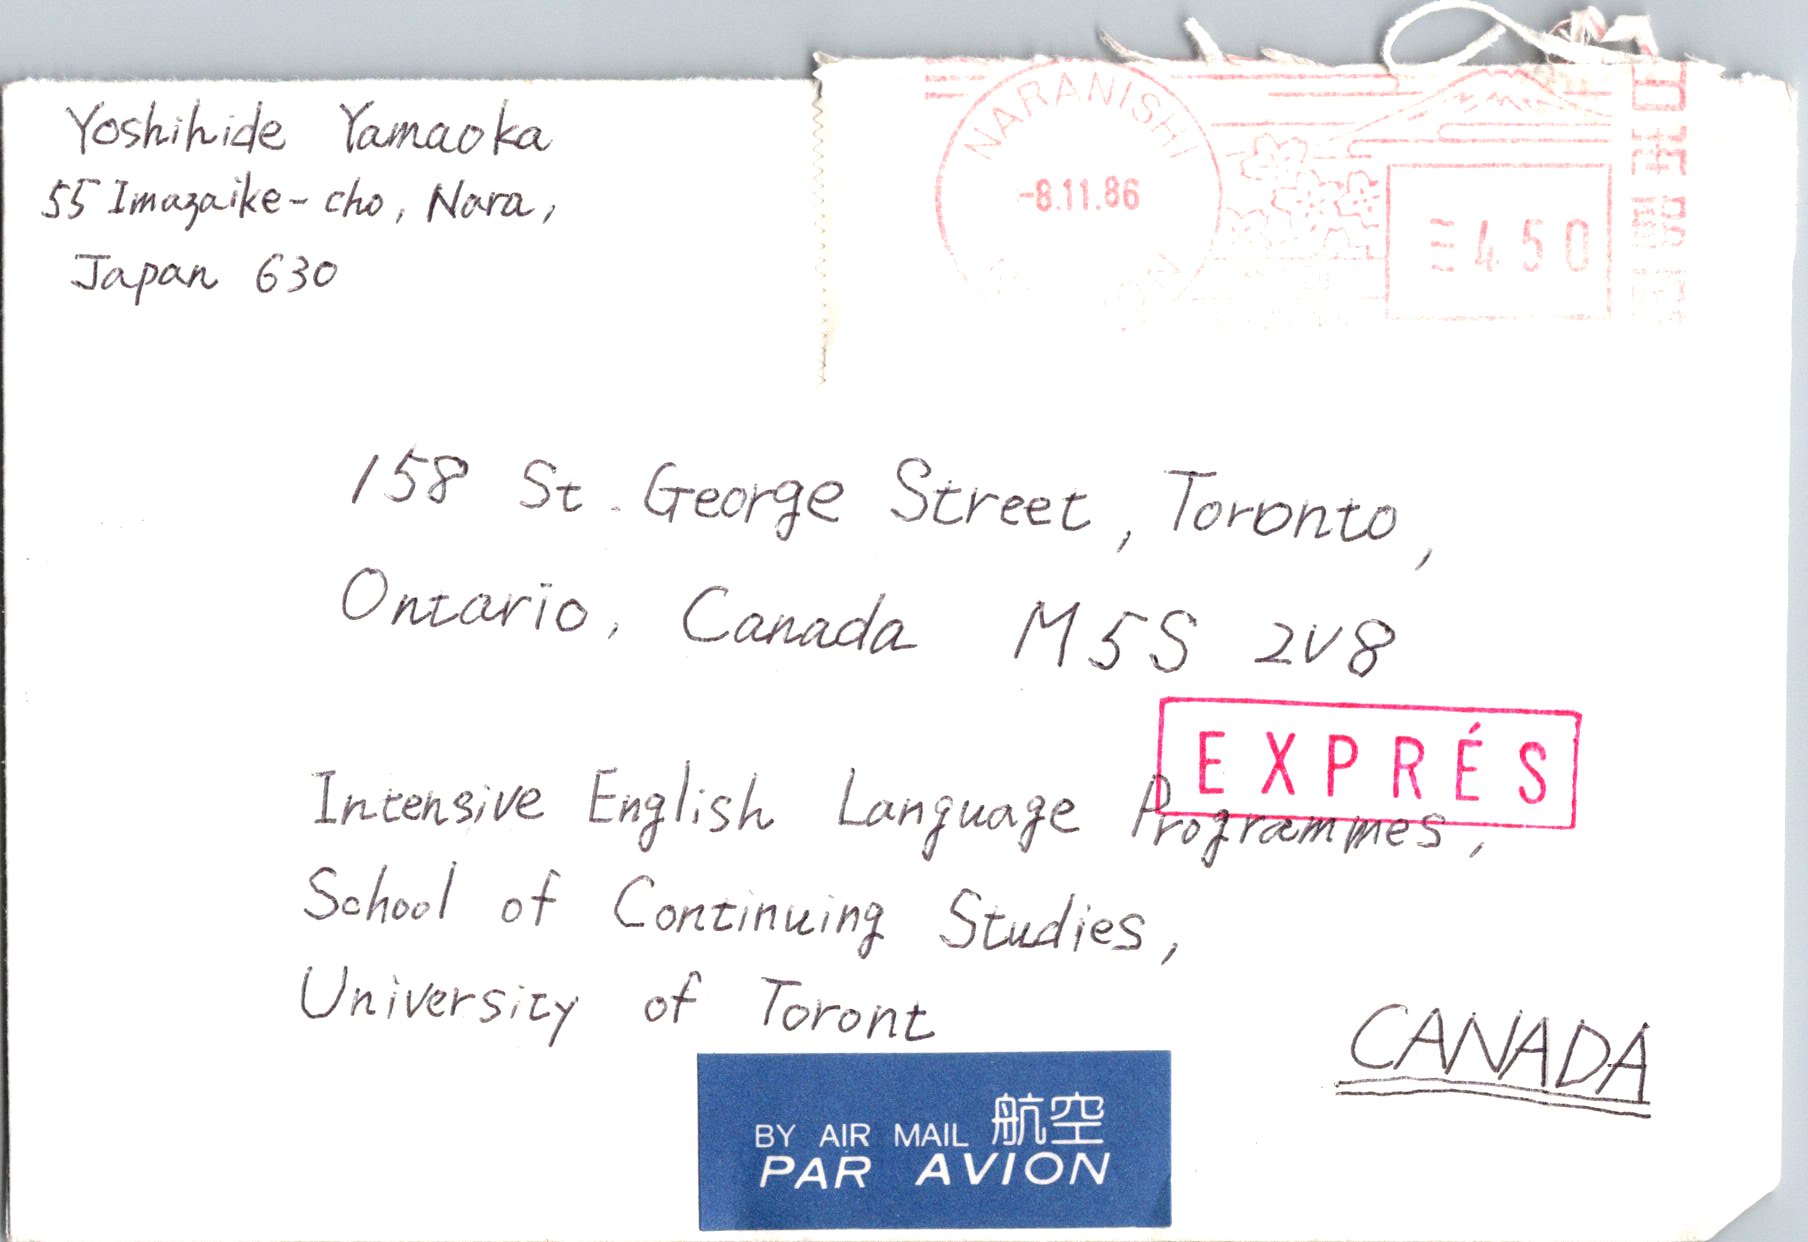 Yoshihide Yamaoka
55 Imazaike-cho, Nara,
Japan 630
NARANISHI
-8.11.86
450
158 St. George Street, Toronto,
Ontario, Canada M5S 2V8
EXPRÉS
Intensive English Language Programmes,
School of Continuing Studies,
University of Toront
CANADA
BY AIR MAIL 航空
PAR AVION